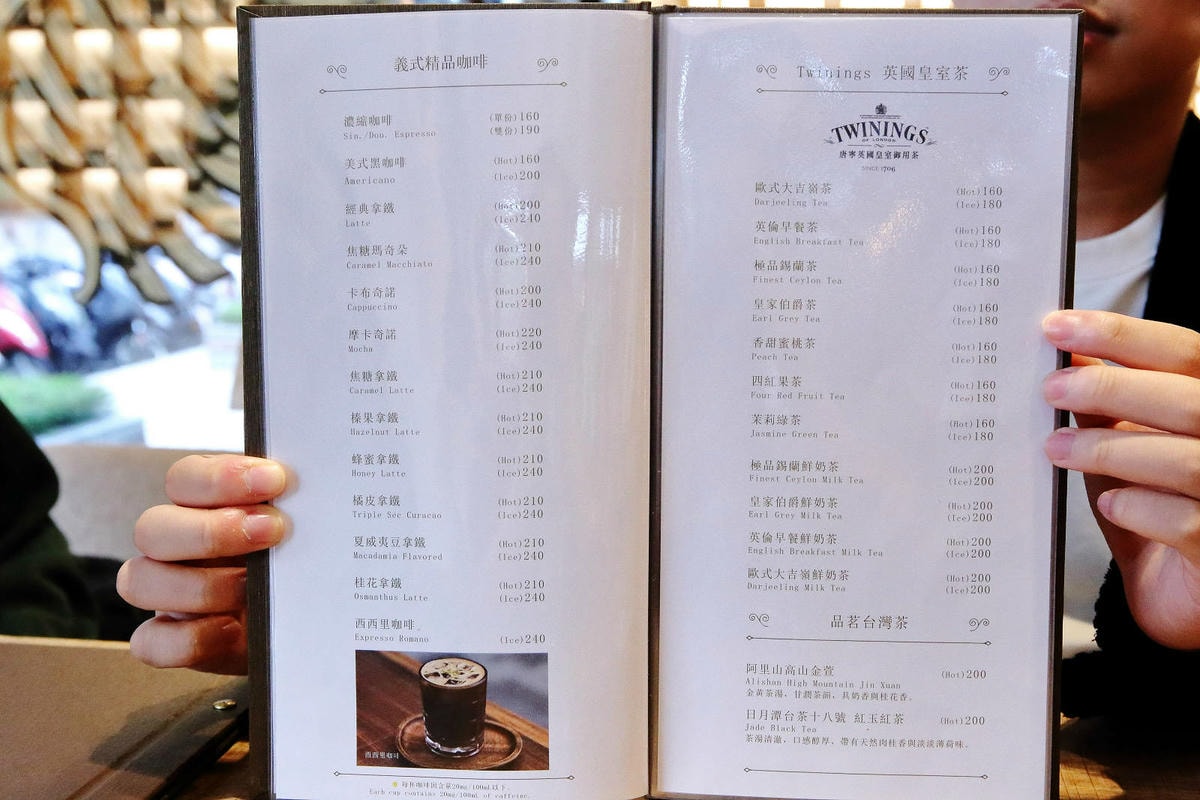 義式精品咖啡
濃縮咖啡 (單份)160
Sin./Dou. Espresso (雙份)190
美式黑咖啡 (Hot)160
Americano (Ice)200
經典拿鐵 (Hot)200
Latte (Ice)240
焦糖瑪奇朵 (Hot)210
Caramel Macchiato (Ice)240
卡布奇諾 (Hot)200
Cappuccino (Ice)240
摩卡奇諾 (Hot)220
Mocha (Ice)240
焦糖拿鐵 (Hot)210
Caramel Latte (Ice)240
榛果拿鐵 (Hot)210
Hazelnut Latte (Ice)240
蜂蜜拿鐵 (Hot)210
Honey Latte (Ice)240
橘皮拿鐵 (Hot)210
Triple Sec Curacao (Ice)240
夏威夷豆拿鐵 (Hot)210
Macadamia Flavored (Ice)240
桂花拿鐵 (Hot)210
Osmanthus Latte (Ice)240
西西里咖啡
Expresso Romano (Ice)240
西西里咖啡
每杯咖啡因含量20mg/100ml以下.
Each cup contains 20mg/100mL of caffeine.
Twinings 英國皇室茶
TWININGS
OF LONDON
唐寧英國皇室御用茶
SINCE 1706
歐式大吉嶺茶 (Hot)160
Darjeeling Tea (Ice)180
英倫早餐茶 (Hot)160
English Breakfast Tea (Ice)180
極品錫蘭茶 (Hot)160
Finest Ceylon Tea (Ice)180
皇家伯爵茶 (Hot)160
Earl Grey Tea (Ice)180
香甜蜜桃茶 (Hot)160
Peach Tea (Ice)180
四紅果茶 (Hot)160
Four Red Fruit Tea (Ice)180
茉莉綠茶 (Hot)160
Jasmine Green Tea (Ice)180
極品錫蘭鮮奶茶 (Hot)200
Finest Ceylon Milk Tea (Ice)200
皇家伯爵鮮奶茶 (Hot)200
Earl Grey Milk Tea (Ice)200
英倫早餐鮮奶茶 (Hot)200
English Breakfast Milk Tea (Ice)200
歐式大吉嶺鮮奶茶 (Hot)200
Darjeeling Milk Tea (Ice)200
品茗台灣茶
阿里山高山金萱 (Hot)200
Alishan High Mountain Jin Xuan
金黃茶湯，甘潤茶韻，具奶香與桂花香。
日月潭台茶十八號 紅玉紅茶 (Hot)200
Jade Black Tea
茶湯清澈，口感醇厚，帶有天然肉桂香與淡淡薄荷味。